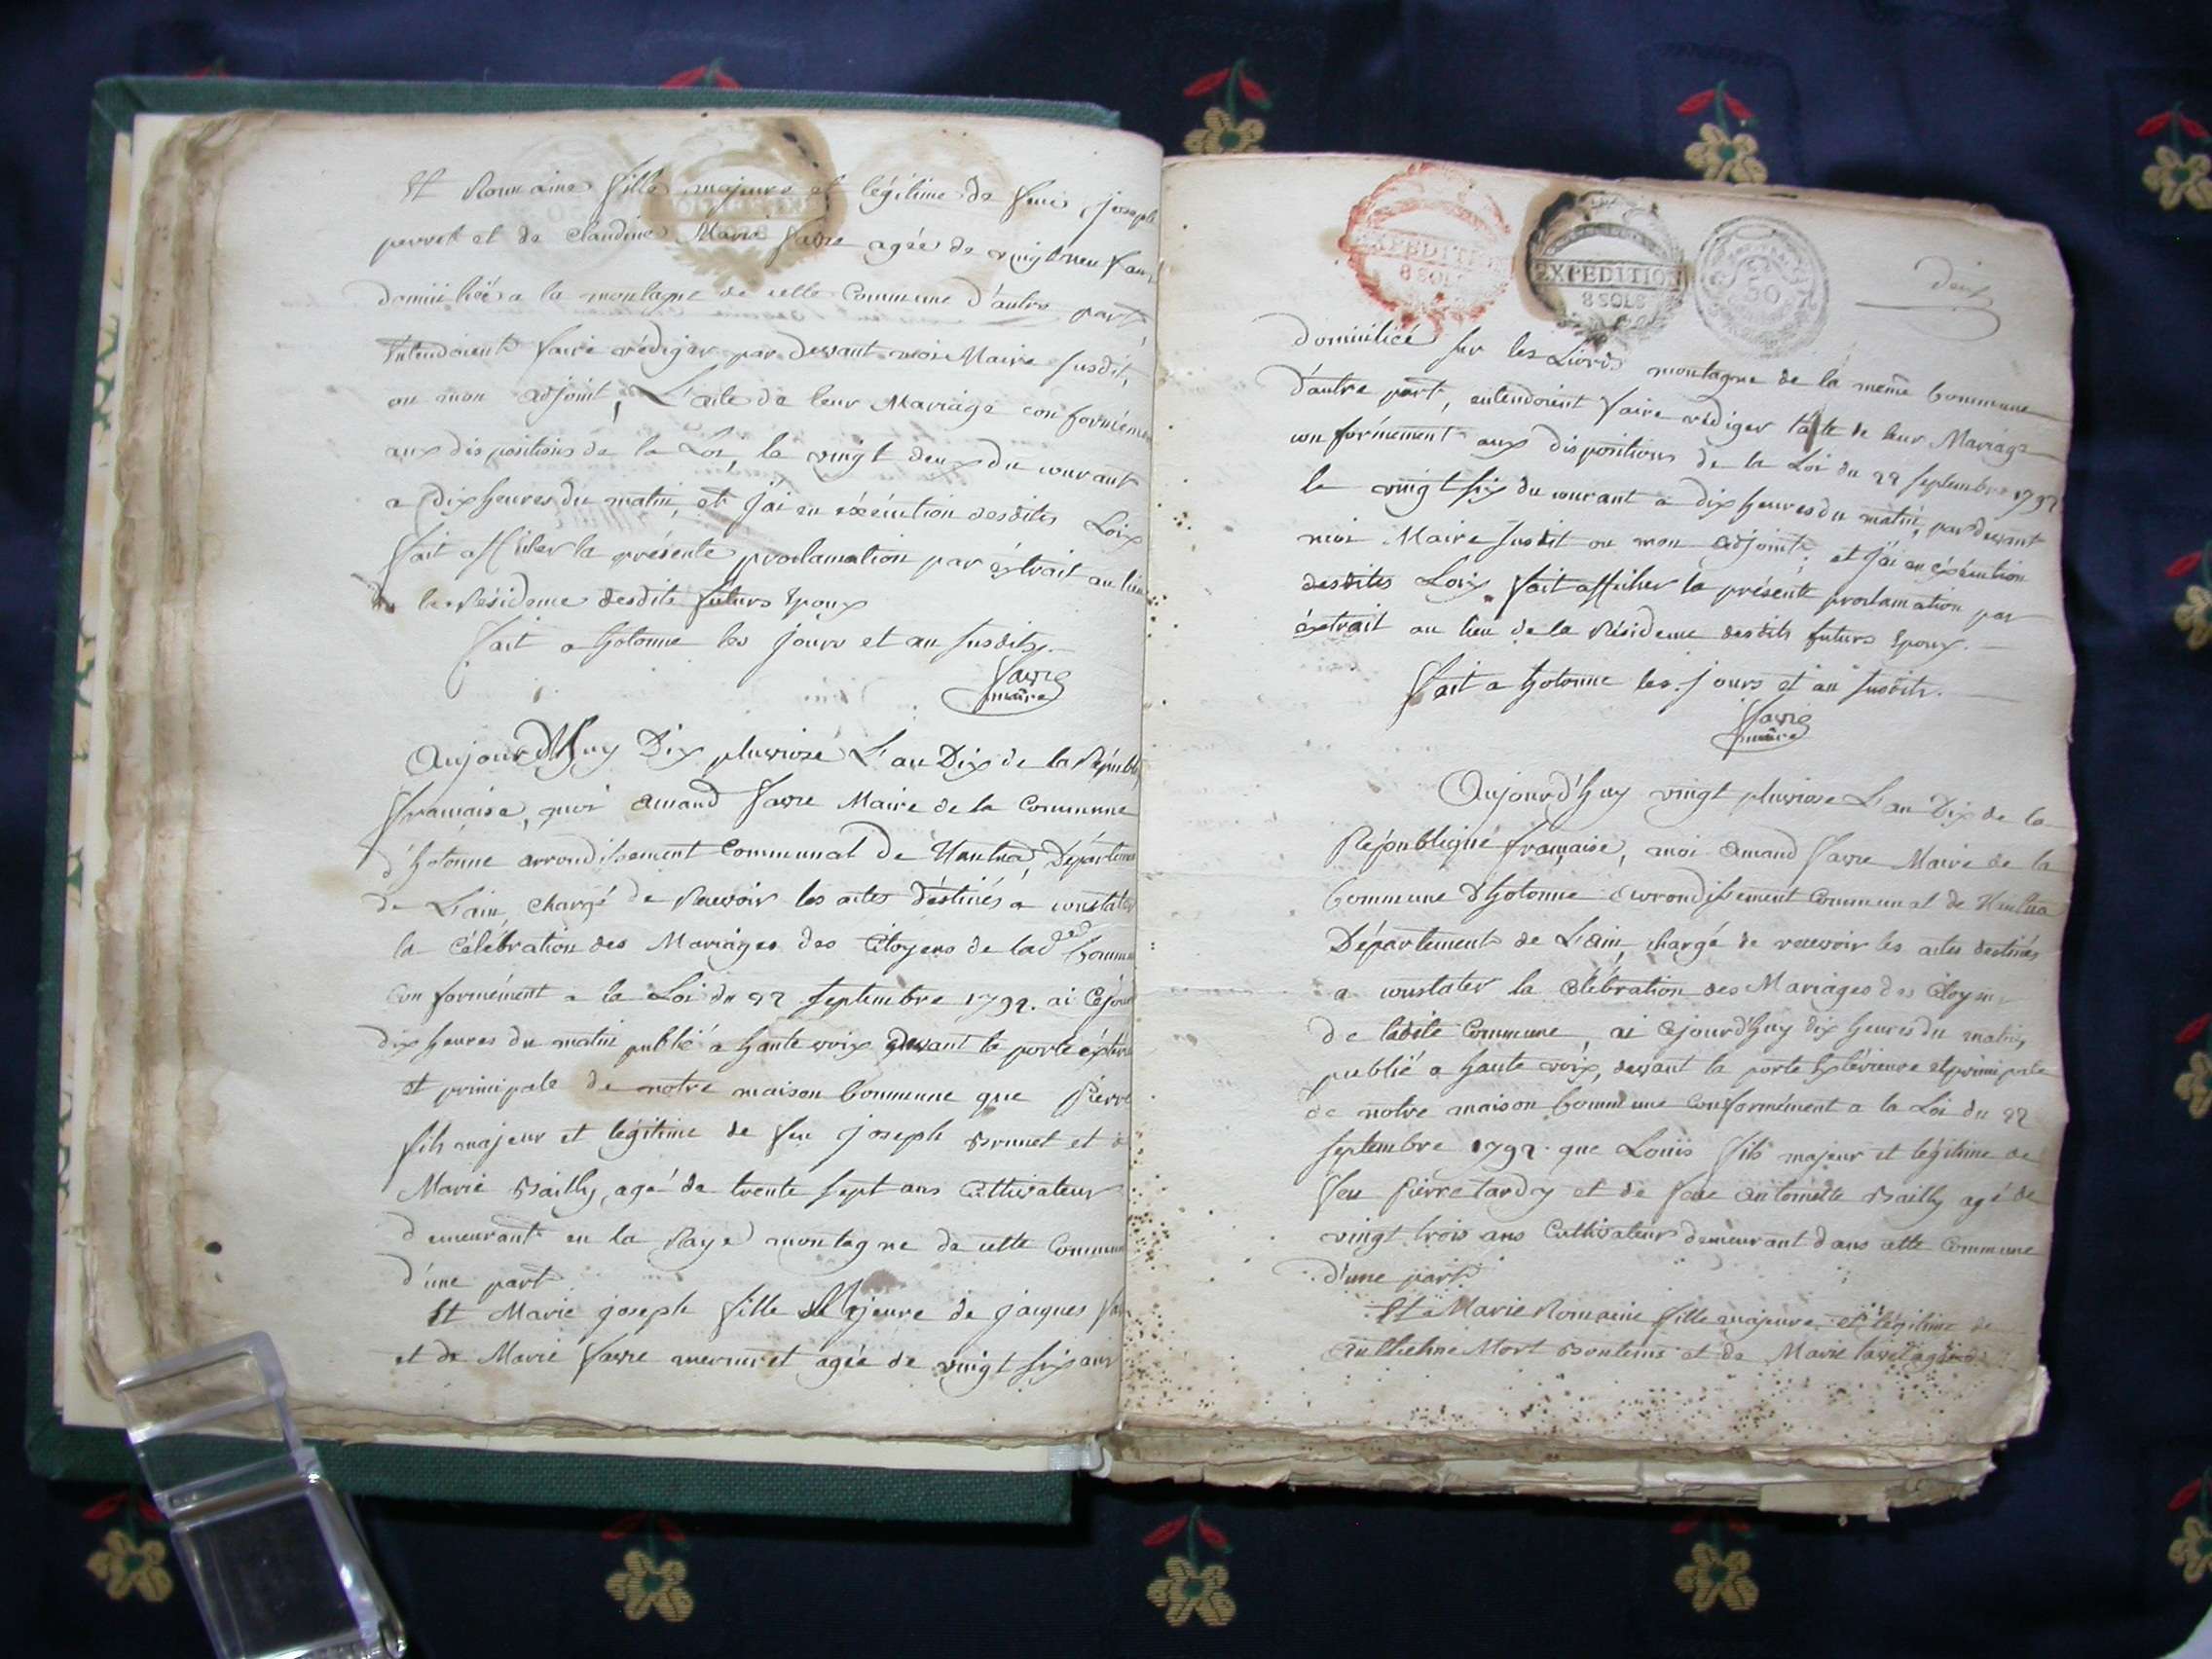 Et Romaine fille majeure et légitime de feu joseph
perret et de Claudine Marie favre agée de vingt neuf ans
domiiliée a la montagne de cette Commune d'autre part
Entendoient faire rédiger par devant moi Maire susdit,
ou mon adjoint, L'acte de leur Mariage conformémen
aux dispositions de la Loi, le vingt deux du courant
a dix heures du matin, et j'ai en éxécution desdites Loix
fait afficher la présente proclamation par éxtrait au lieu
de la Résidence desdits futurs Epoux
fait a hotonne les jours et an susdits.
favre
maire
Aujourd'huy Dix pluviose L'an Dix de la Républi
française, moi amand favre Maire de la Commune
d'hotonne arrondissement Communal de Nantua, Départeme
de L'ain, chargé de Recevoir les actes déstinés a constater
la Célébration des Mariages des Citoyens de lad Commu
Conformément a la Loi du 22 septembre 1792. ai Cejour
dix heures du matin publié a haute voix devant la porte éxtéri
et principale de notre maison Commune que pierre
fils majeur et légitime de feu joseph Brunet et d
Marie Bailly, agé de trente sept ans Cultivateur
demeurant en la Raye montagne de cette Commun
d'une part
Et Marie joseph fille Majeure de jacques
et de Marie favre agée de vingt six ans
deux
EXPEDITION
8 SOLS
EXPEDITION
8 SOLS
50
domiiliée sur les Liords montagne de la même Commune
d'autre part, entendoient faire rédiger l'acte de leur Mariage
conformément aux dispositions de la Loi du 22 septembre 1792
le vingt six du courant a dix heures du matin, par devant
moi Maire susdit ou mon adjoint, et j'ai en éxécution
desdites Loix fait afficher la présente proclamation par
éxtrait au lieu de la Résidence desdits futurs Epoux.
fait a hotonne les jours et an susdits.
favre
maire
Aujourd'huy vingt pluviose L'an Dix de la
République française, moi amand favre Maire de la
Commune d'hotonne arrondissement Communal de Nantua
Département de L'ain, chargé de recevoir les actes destinés
a constater la Célébration des Mariages des Citoyens
de ladite Commune, ai cejourd'huy dix heures du matin,
publié a haute voix, devant la porte Extérieure et principale
de notre maison Commune Conformément a la Loi du 22
septembre 1792. que Louis fils majeur et légitime de
feu pierre tardy et de feue antoinette Bailly agé de
vingt trois ans Cultivateur demeurant dans cette Commune
d'une part
Et Marie Romaine fille majeure et légitime de
Anthelme Mort Bontems et de Marie agée de